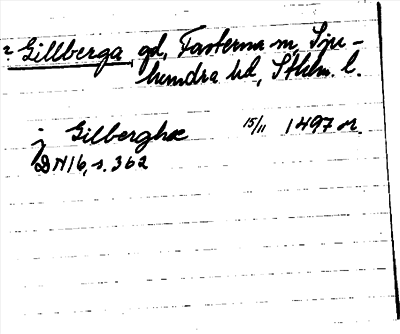 ? Gillberga gd, Fasterna sn, Sju-
hundra hd, Sthlm. l.
j Gilberghæ 15/11 1497 or.
DN 16, s. 362